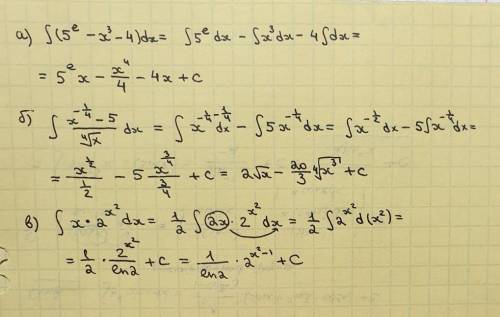 а) ∫(5^e − x³ − 4)dx = ∫5^e dx − ∫x³dx − 4∫dx =
= 5^e x − x⁴/4 − 4x + c
б) ∫ (x^(-1/4) − 5)/⁴√x dx = ∫ x^(-1/4-1/4) dx − ∫ 5x^(-1/4) dx = ∫x^(-1/2) dx − 5∫x^(-1/4) dx =
= x^(1/2)/(1/2) − 5 x^(3/4)/(3/4) + c = 2√x − 20/3 ⁴√x³ + c
в) ∫ x · 2^(x²) dx = 1/2 ∫ 2x · 2^(x²) dx = 1/2 ∫ 2^(x²) d(x²) =
= 1/2 · 2^(x²)/ln2 + c = 1/ln2 · 2^(x²−1) + c